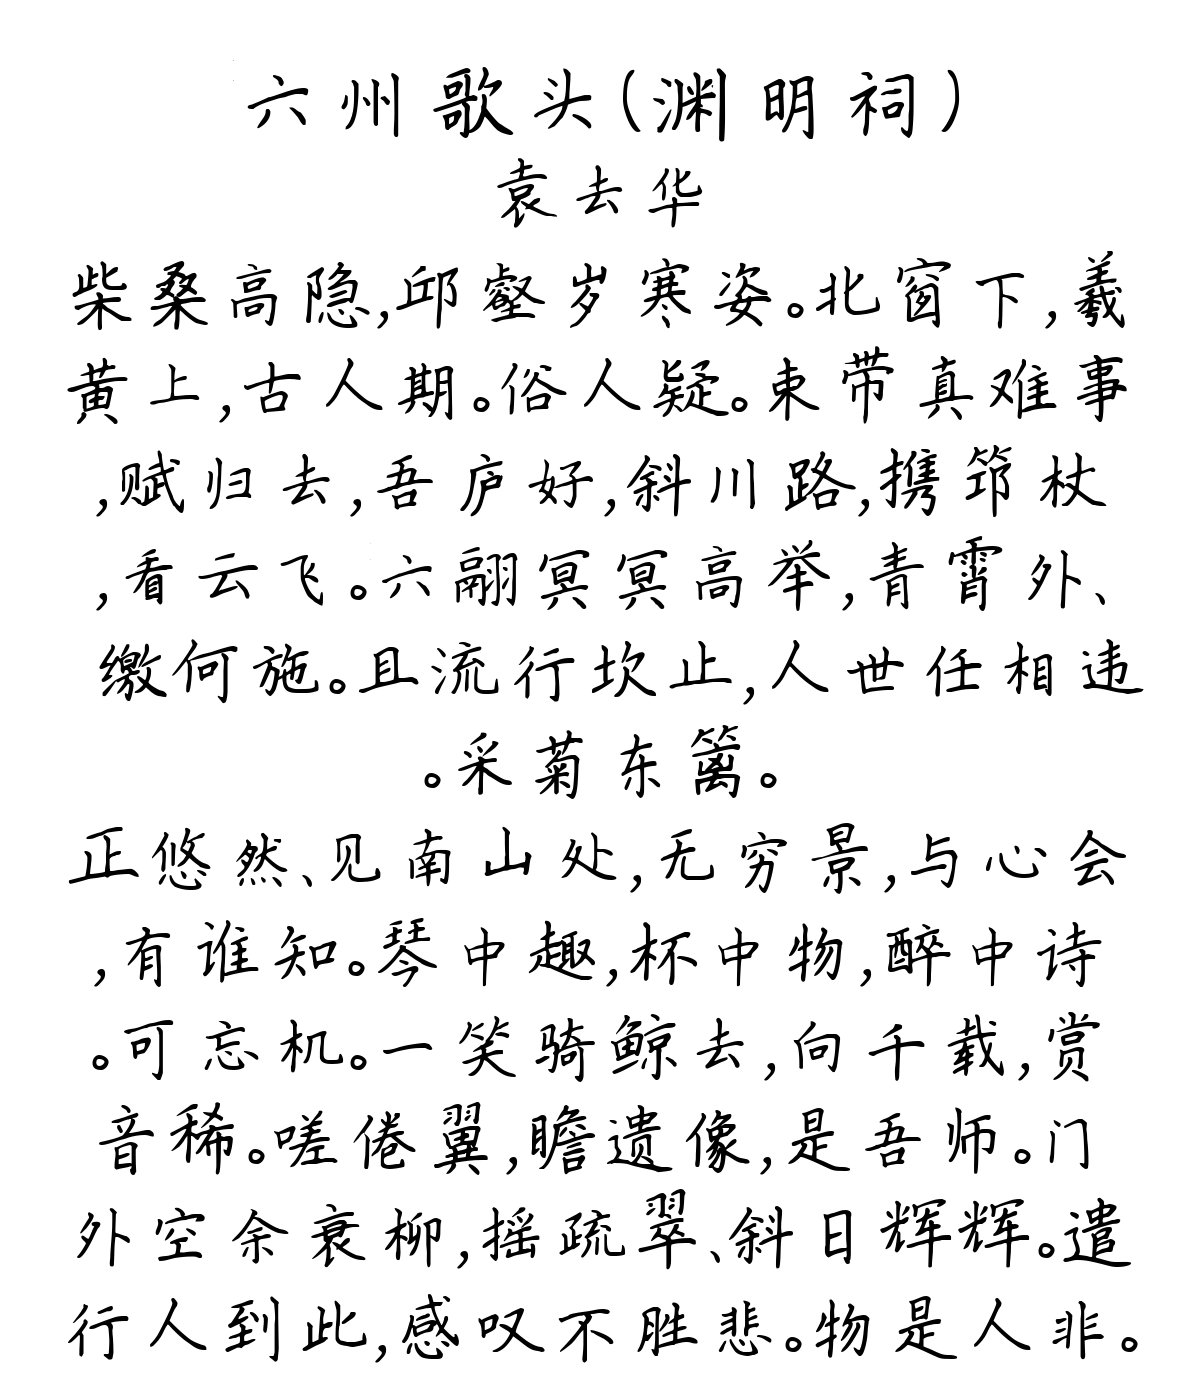 六州歌头(渊明祠)
袁去华
柴桑高隐,邱壑岁寒姿。北窗下,羲
黄上,古人期。俗人疑。束带真难事
,赋归去,吾庐好,斜川路,携筇杖
,看云飞。六翮冥冥高举,青霄外、
缴何施。且流行坎止,人世任相违
。采菊东篱。
正悠然、见南山处,无穷景,与心会
,有谁知。琴中趣,杯中物,醉中诗
。可忘机。一笑骑鲸去,向千载,赏
音稀。嗟倦翼,瞻遗像,是吾师。门
外空余衰柳,摇疏翠、斜日辉辉。遣
行人到此,感叹不胜悲。物是人非。